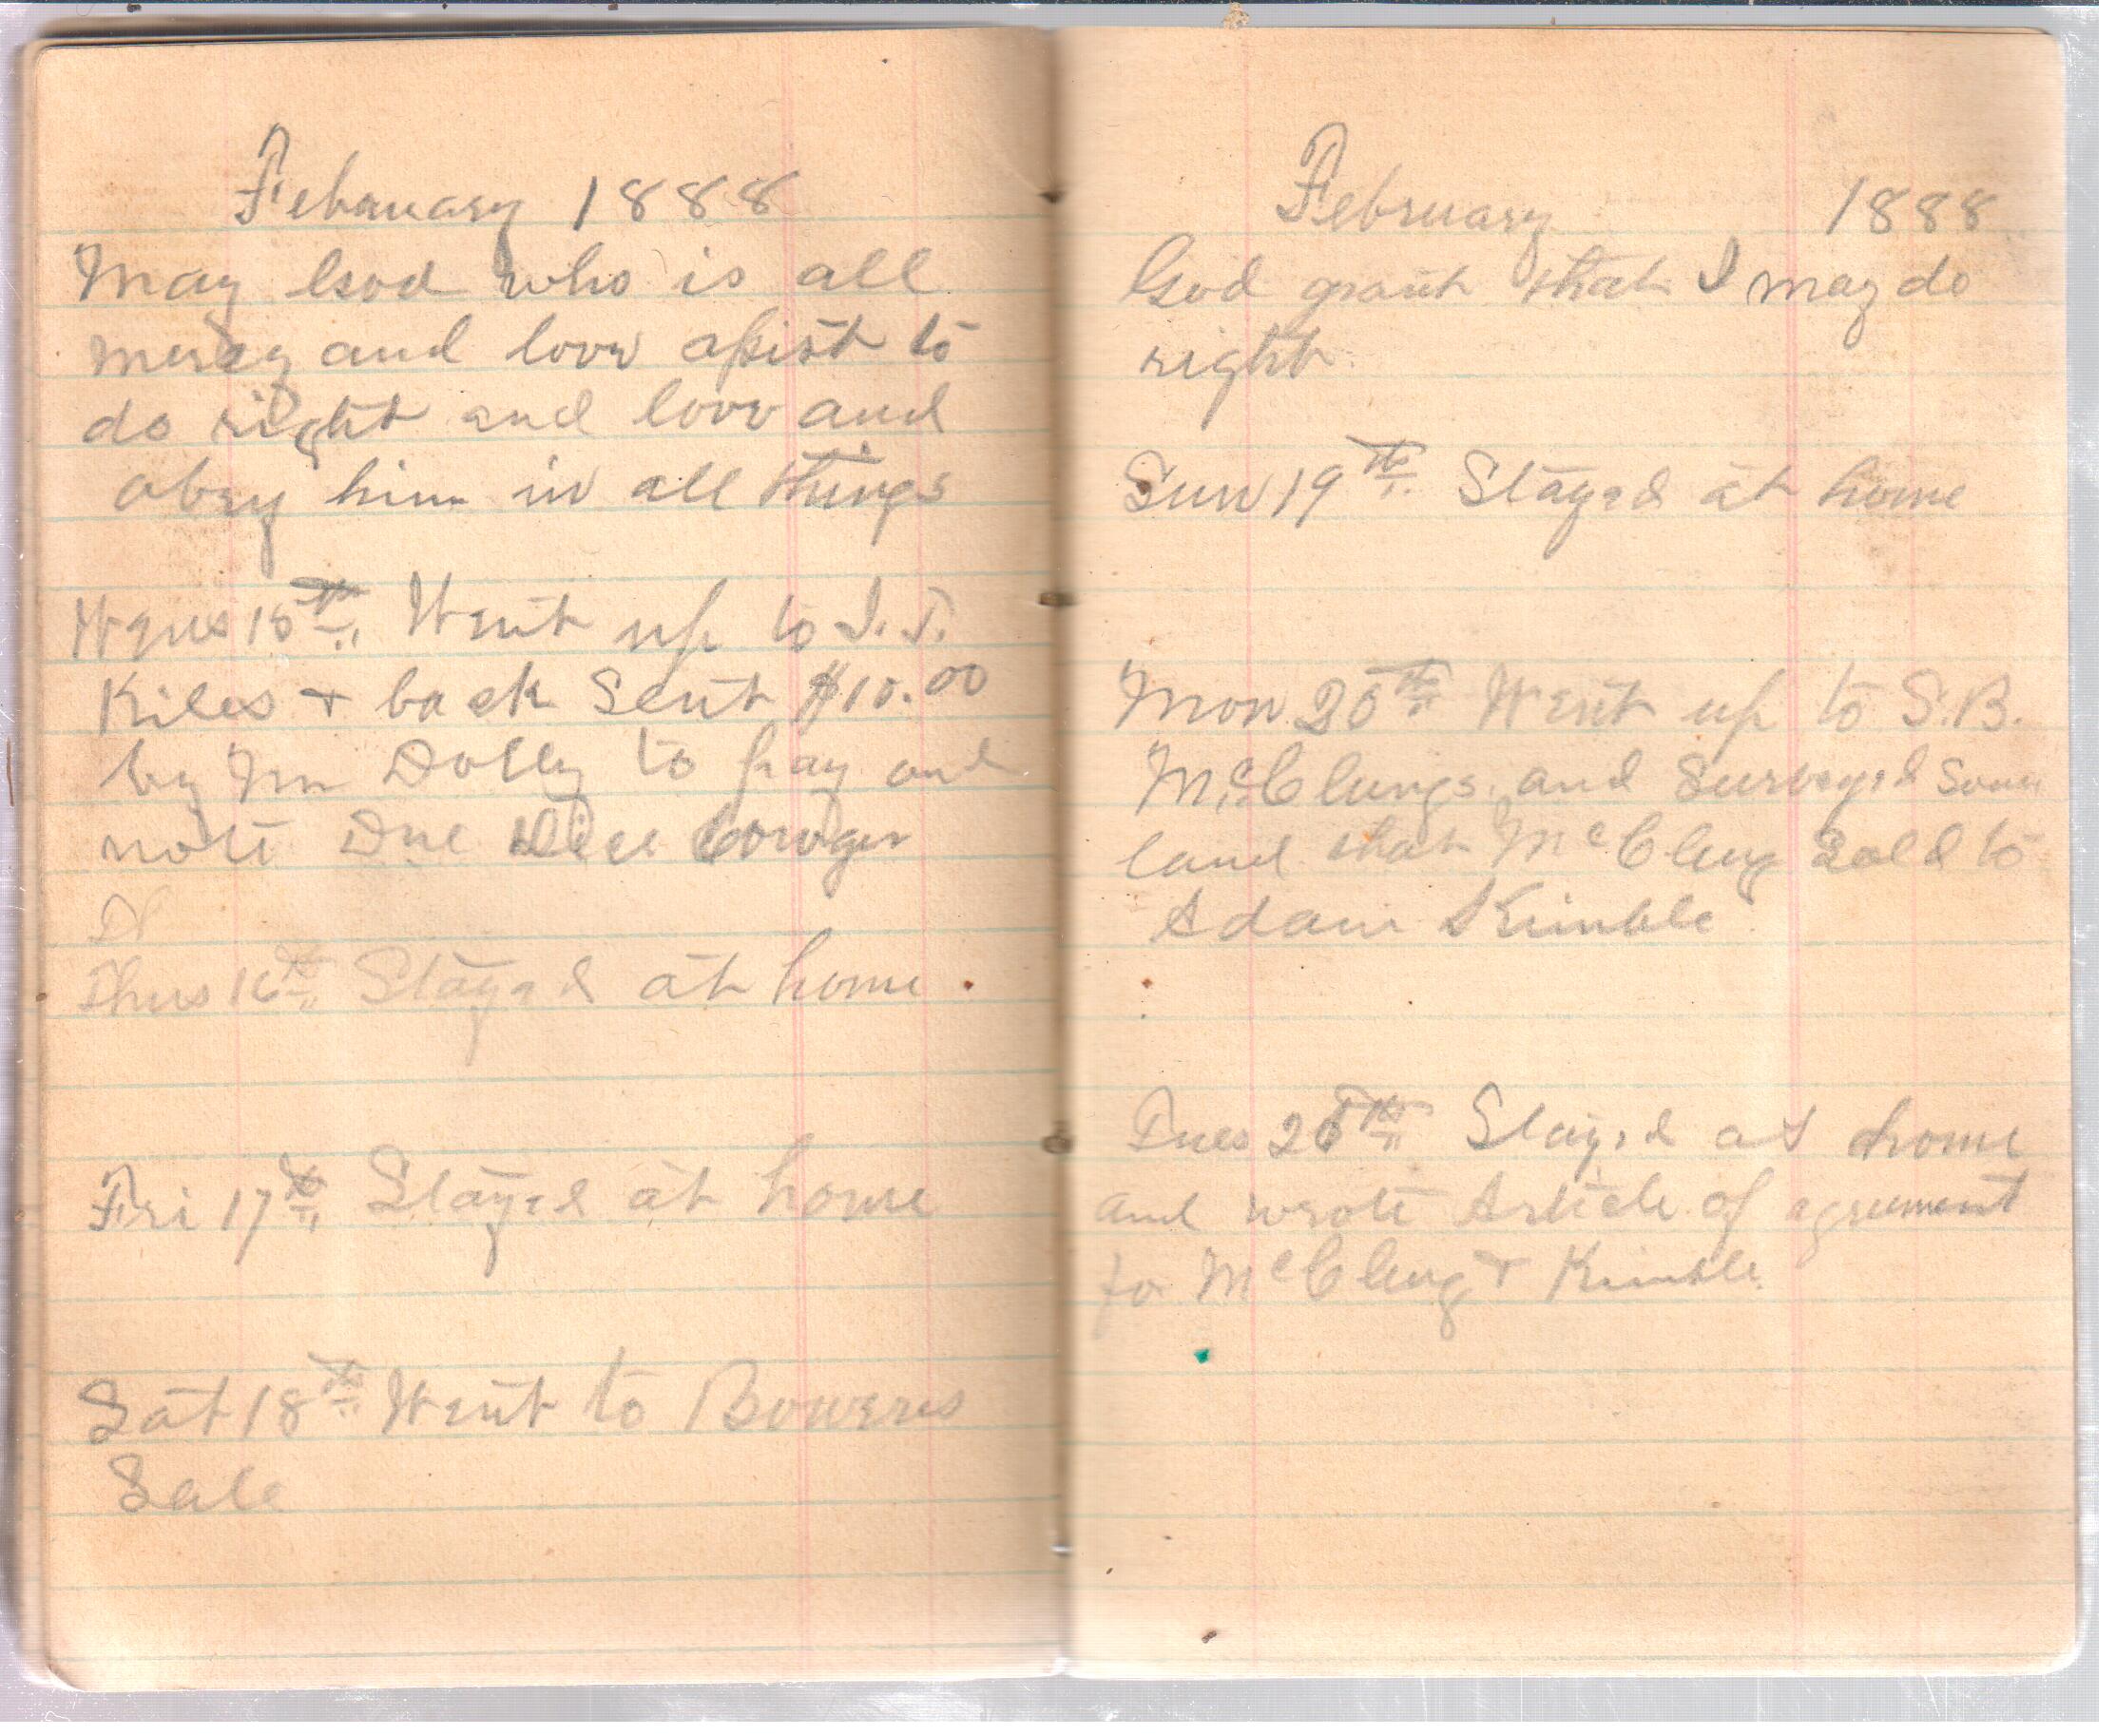 February 1888
May God who is all
mercy and love assist to
do right and love and
obey him in all things
Wens 15th Went up to I. T.
Kiles + back Sent $10.00
by Mr Dolly to pay on
note Due Dice Cowger
Thus 16th Stayed at home
Fri 17th Stayed at home
Sat 18th Went to Bowers
Sale
February 1888
God grant that I may do
right
Sun 19th Stayed at home
Mon 20th Went up to S.B.
McClungs and Surveyed Some
land that McClung Sold to
Adam Kimble
Tues 20th Stayed at home
and wrote Article of agreement
for McClung + Kimble